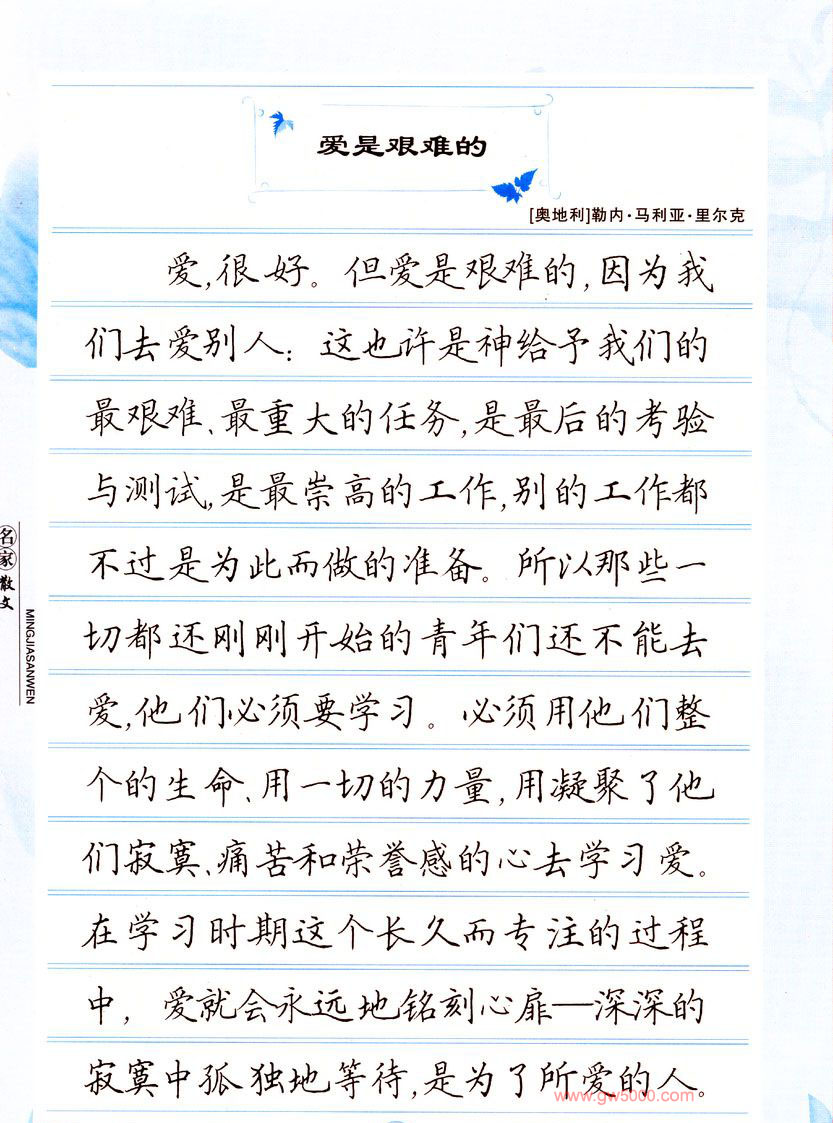 爱是艰难的
[奥地利]勒内·马利亚·里尔克
爱,很好。但爱是艰难的,因为我
们去爱别人：这也许是神给予我们的
最艰难、最重大的任务,是最后的考验
与测试,是最崇高的工作,别的工作都
不过是为此而做的准备。所以那些一
切都还刚刚开始的青年们还不能去
爱,他们必须要学习。必须用他们整
个的生命、用一切的力量,用凝聚了他
们寂寞、痛苦和荣誉感的心去学习爱。
在学习时期这个长久而专注的过程
中，爱就会永远地铭刻心扉—深深的
寂寞中孤独地等待,是为了所爱的人。
名家散文
MINGJIASANWEN
www.gw5000.com